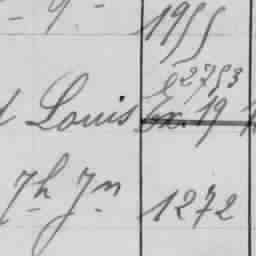 - 9 - 1955
e2753
Louis Ex. 19
7h Jn 1272